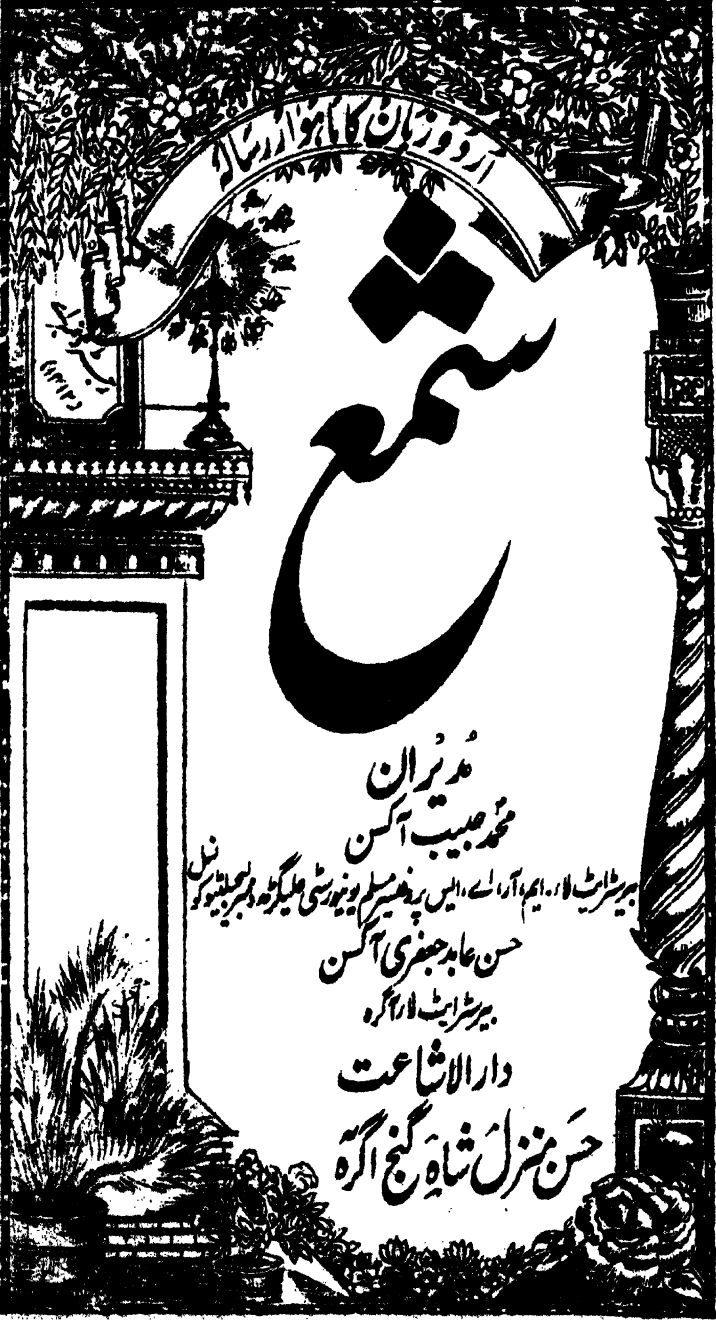 اردو زبان کا ماہوار رسالہ
شمع
مُدیُران
محمد حبیب آکسن
بیرسٹرایٹ لا، ایم، آر، اے، ایس پروفیسر مسلم یونیورسٹی علیگڑھ و ممبر لیجسلیٹیو کونسل
حسن عابد جعفری آکسن
بیرسٹرایٹ لار آگرہ
دارالاشاعت
حسَن منزل شاہ گنج آگرہ